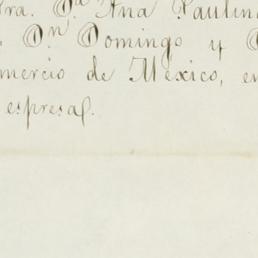 ra. D.ª Ana Paulin
Dⁿ Domingo y
mercio de México, e
espresa.